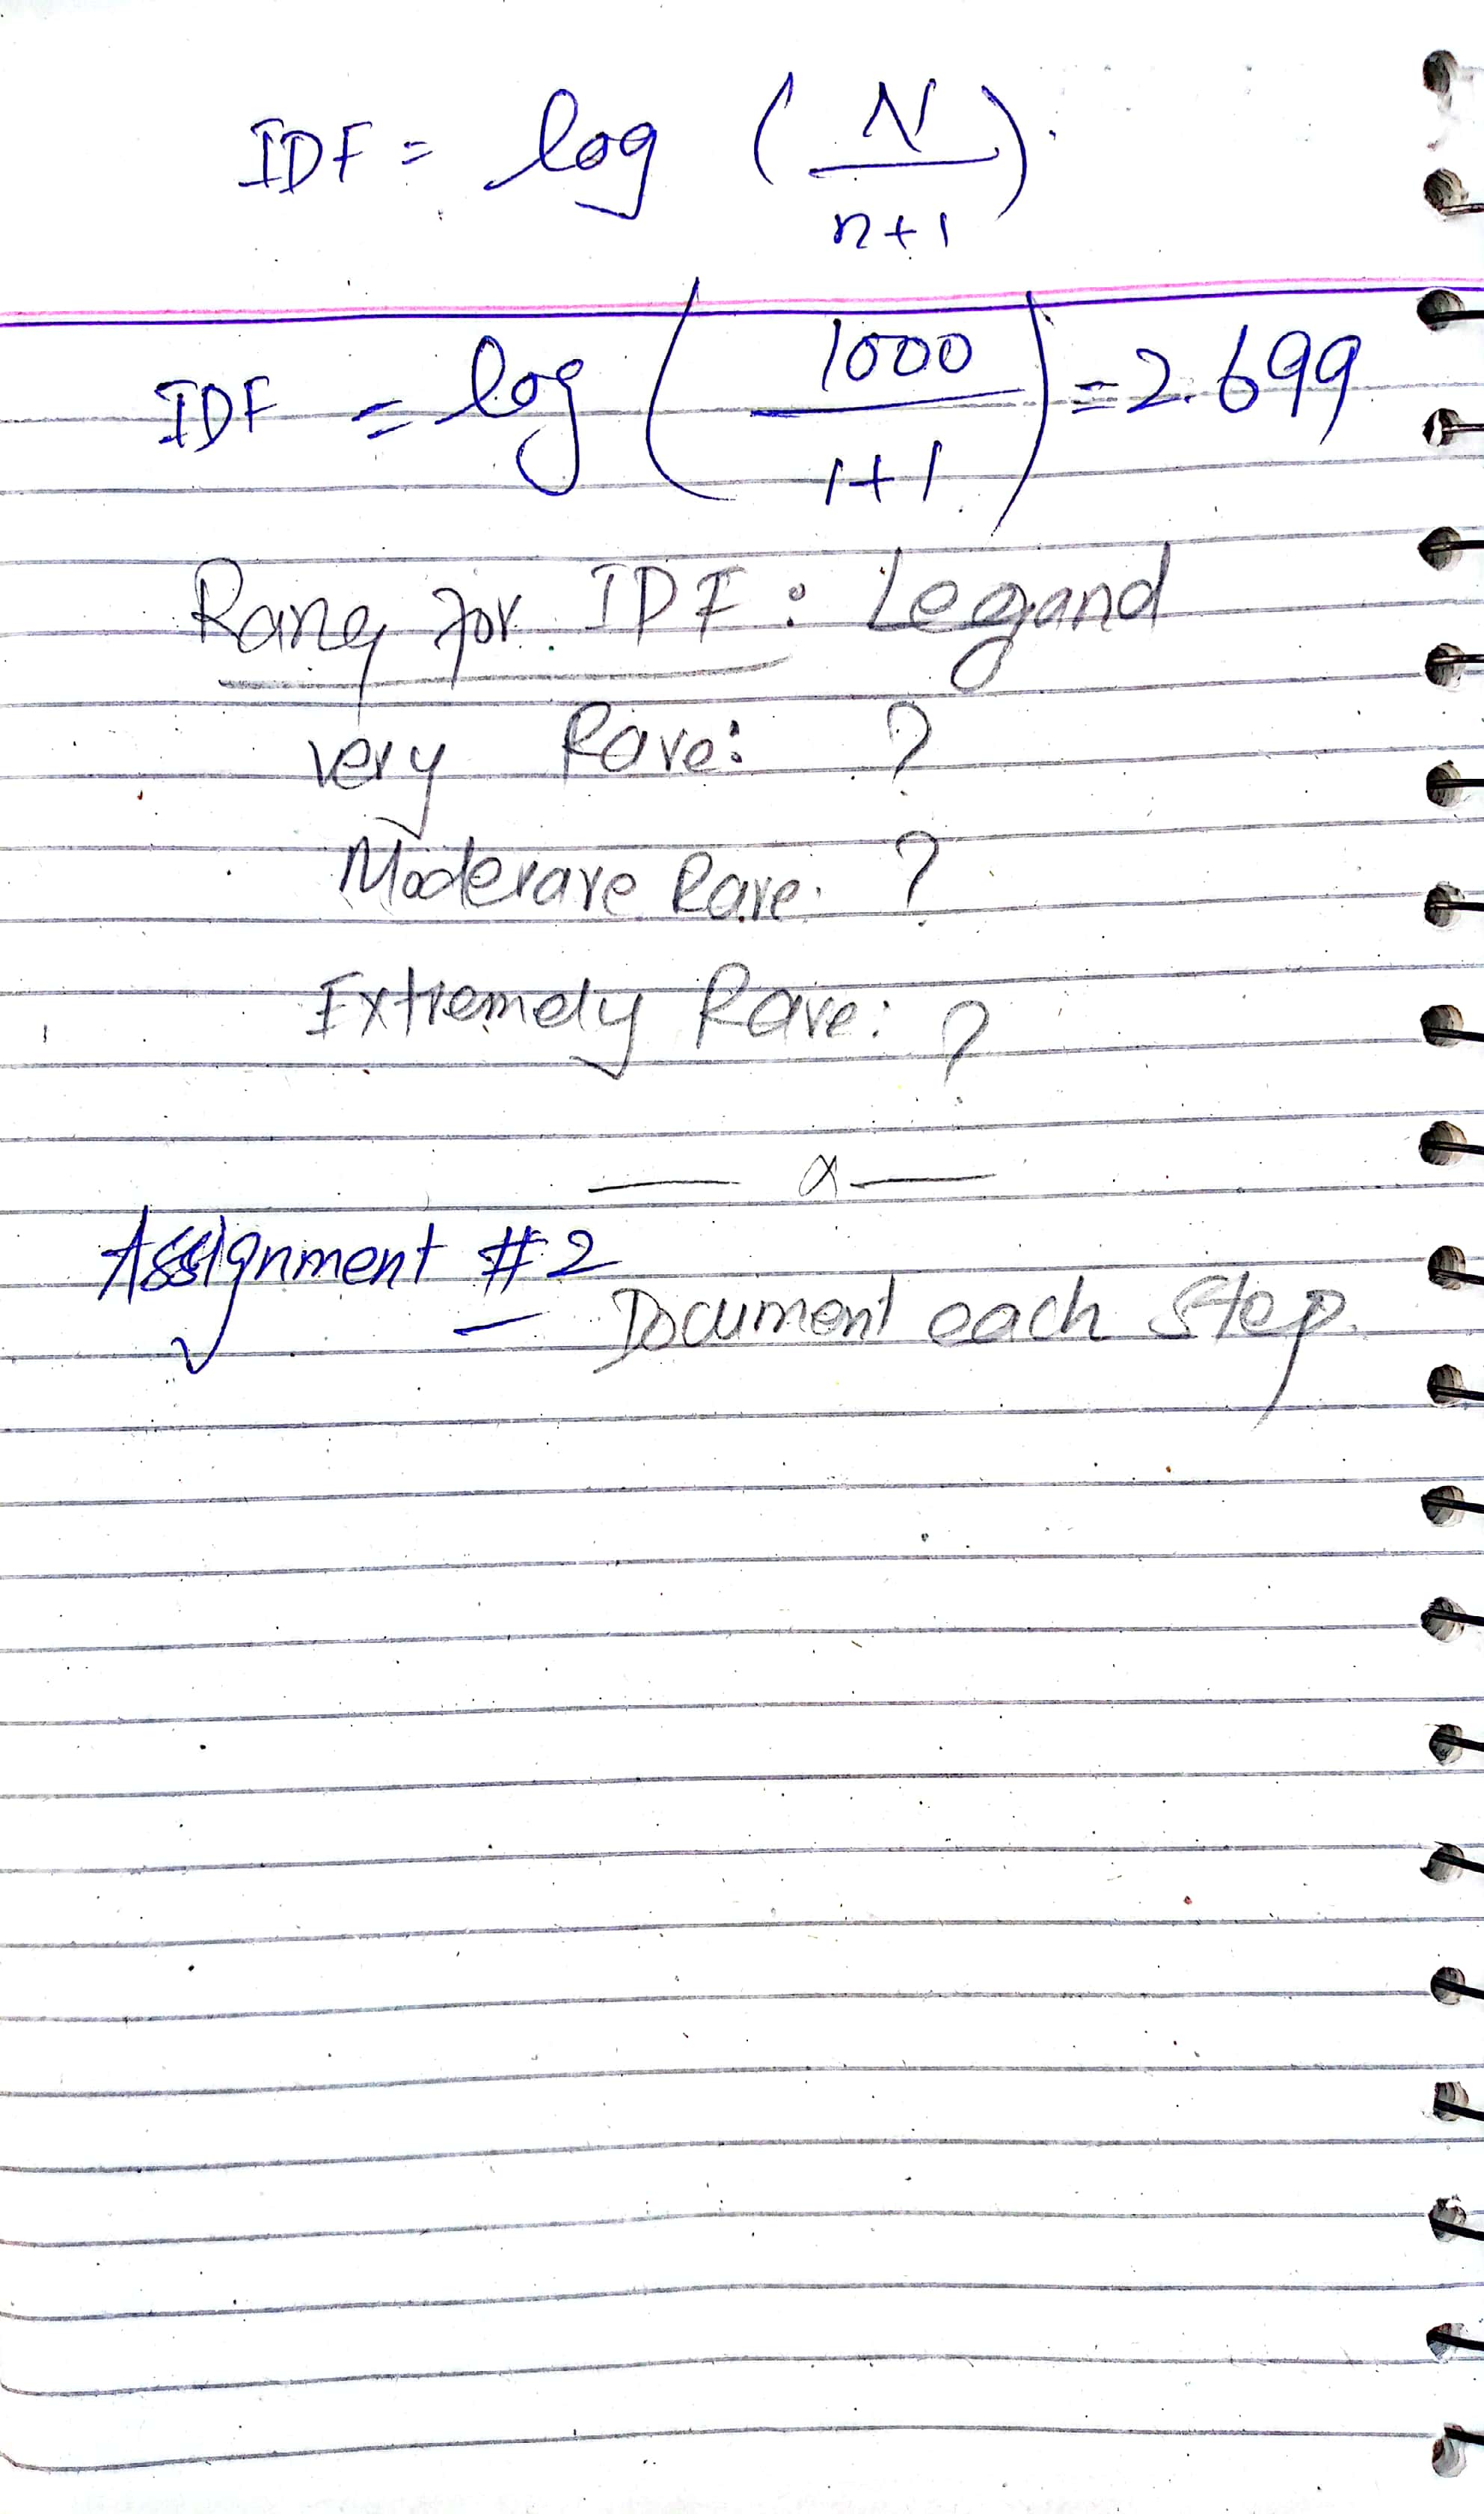 IDF = log ( N / n+1 )
IDF = log ( 1000 / 1+1 ) = 2.699
Rang for IDF : Legand
very Rare: ?
Moderare Rare: ?
Extremely Rare: ?
— x —
Assignment #2
— Document each step.